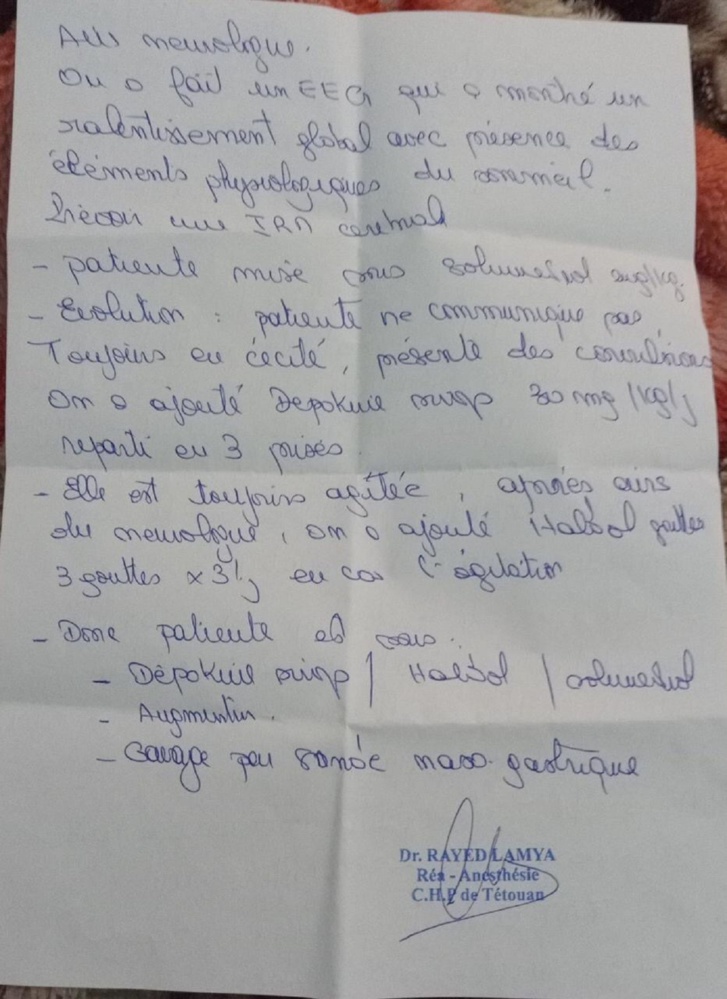 Avis neurologue.
On a fait un EEG qui a montré un
ralentissement global avec présence des
éléments physiologiques du sommeil.
Prévoir une IRM cerebral
- patiente mise sous solumedrol 2mg/kg.
- Evolution : patiente ne communique pas,
Toujours en cécité, présente des convulsions
on a ajouté Depakine sirop 30 mg/kg/j
reparti en 3 prises.
- Elle est toujours agitée, après avis
du neurologue, on a ajouté Haldol gouttes
3 gouttes x3/j en cas d'agitation
- Donc patiente est sous :
- Dépakine sirop / Haldol / solumedrol
- Augmentin.
- Gavage par sonde naso-gastrique
Dr. RAYED LAMYA
Réa - Anesthésie
C.H.P de Tétouan